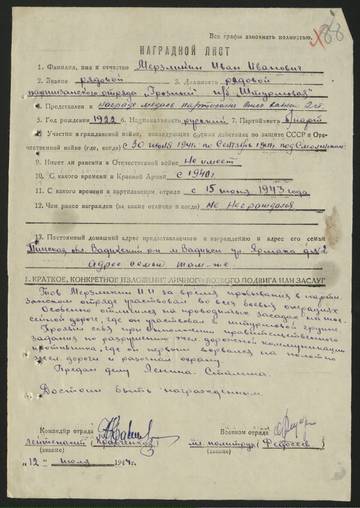 Все графы заполнять полностью.
НАГРАДНОЙ ЛИСТ
1. Фамилия, имя и отчество Мерзлякин Иван Иванович
2. Звание рядовой 3. Должность рядовой
партизанского отряда "Грозный" п/б "Штурмовая"
4. Представлен к награде медаль "партизана" 2ст.
5. Год рождения 1922 6. Национальность русский 7. Партийность б/парт
8. Участие в гражданской войне, последующих боевых действиях по защите СССР и Оте-
чественной войне (где, когда) С 30 июня 1941 по сентябрь 1941 под Смоленском
9. Имеет ли ранения в Отечественной войне Не имеет
10. С какого времени в Красной Армии с 1940г
11. С какого времени в партизанском отряде с 15 июня 1943 года
12. Чем ранее награжден (за какие отличия и когда) Не награждался
13. Постоянный домашний адрес представляемого к награждению и адрес его семьи
обл. Вадинский р-н
Адрес семьи там-же
1. КРАТКОЕ, КОНКРЕТНОЕ ИЗЛОЖЕНИЕ ЛИЧНОГО БОЕВОГО ПОДВИГА ИЛИ ЗАСЛУГ
Тов Мерзлякин И И за время пребывания в парти-
занском отряде участвовал во всех боевых операциях
Особенно отличился на проводимых засадах на шос-
сейной дороге, где он участвовал в штурмовой группе.
Проявил себя при выполнении правительственного
задания по разрушению жел дорожной коммуникации
противника, где он первым ворвался на полотно
жел дороги и
Предан делу Ленина, Сталина.
Достоин быть награжденным.
Командир отряда
лейтенант (Кравченков)
(звание)
Военком отряда
мл. политрук (Федосеев)
(звание)
"12" июля 1944 г.